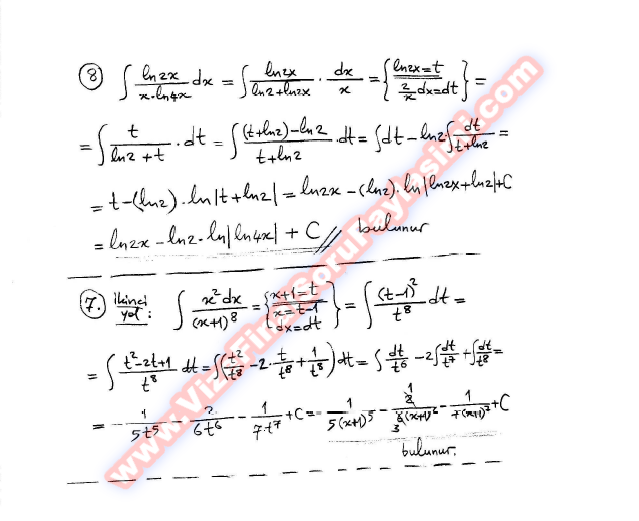 8 ∫ ln2x / x·ln4x dx = ∫ ln2x / ln2+ln2x · dx/x = { ln2x=t / 2/x dx=dt } =
= ∫ t / ln2+t · dt = ∫ (t+ln2)−ln2 / t+ln2 · dt = ∫dt − ln2·∫ dt / t+ln2 =
= t−(ln2)·ln|t+ln2| = ln2x −(ln2)·ln|ln2x+ln2|+C
= ln2x − ln2·ln|ln4x| + C // bulunur
7. ikinci yol: ∫ x²dx / (x+1)⁸ = { x+1=t / x=t−1 / dx=dt } = ∫ (t−1)² / t⁸ dt =
= ∫ t²−2t+1 / t⁸ dt = ∫( t²/t⁸ − 2·t/t⁸ + 1/t⁸ ) dt = ∫ dt/t⁶ − 2∫ dt/t⁷ + ∫ dt/t⁸ =
= − 1/5t⁵ − 2/6t⁶ − 1/7t⁷ +C = − 1/5(x+1)⁵ − 1/3(x+1)⁶ − 1/7(x+1)⁷ +C
bulunur.